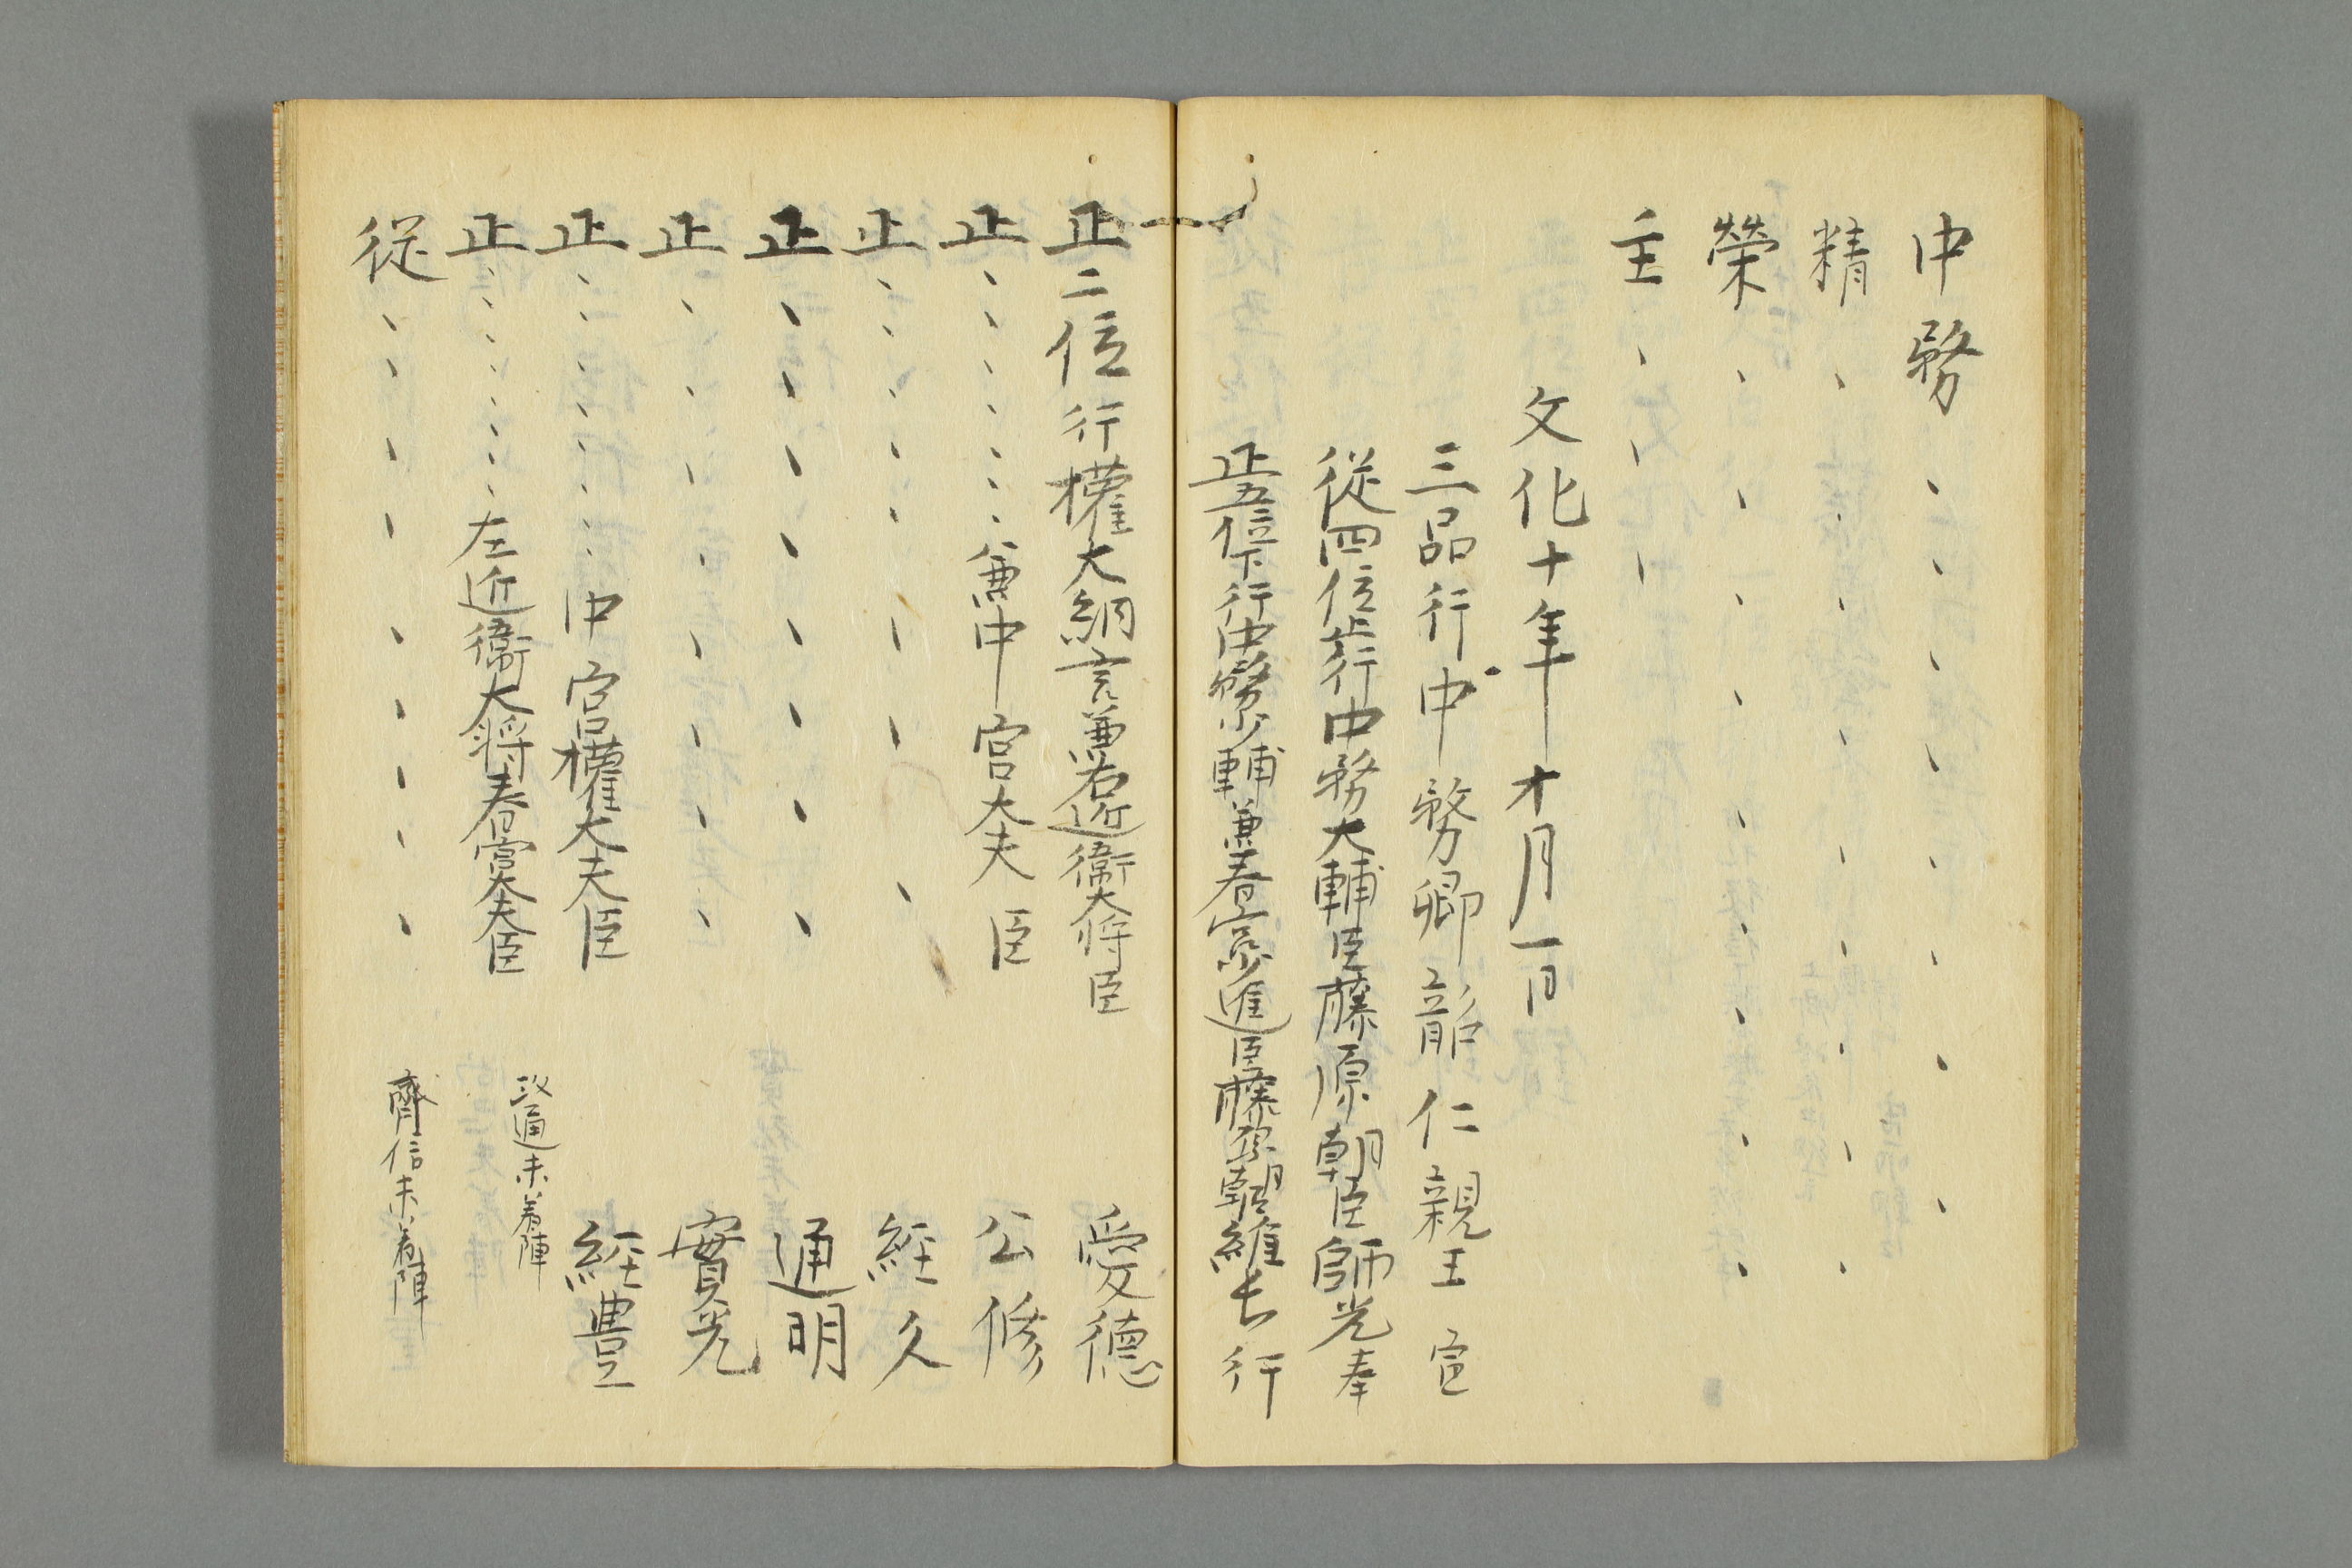 中務、、、、、、、、
精、、、、、、、、
榮、、、、、、、、、
主、、、
文化十年十月一日
三品行中務卿韶仁親王宣
從四位上行中務大輔臣藤原朝臣師光奉
正五位下行中務少輔兼春宮少進臣藤原朝臣維長行
正二位行權大納言兼右近衛大将臣 愛德
正、、、、、、兼中宮大夫臣 公修
正、、、、、、、、 經久
正、、、、、、、、 通明
正、、、、、、、、 實光
正、、、、、、、中宮權大夫臣 經豊
正、、、、、、、左近衛大将春宮大夫臣 通未着陣
從、、、、、、、、、 齊信未着陣